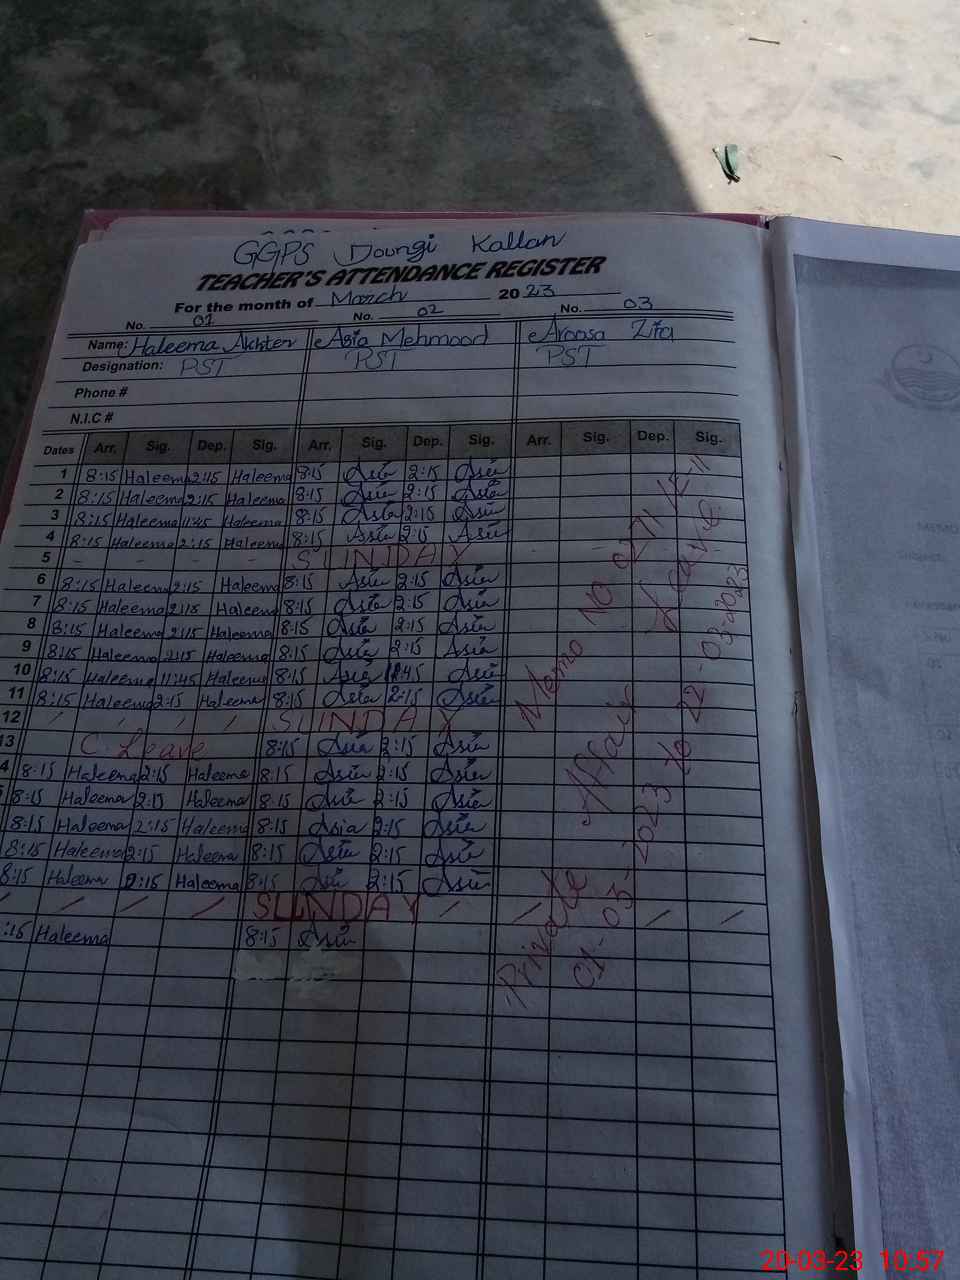 GGPS Doungi Kallan
TEACHER'S ATTENDANCE REGISTER
For the month of March 2023
No. 01 No. 02 No. 03
Name: Haleema Akhter Asia Mehmood Aroosa Zia
Designation: PST PST PST
Phone #
N.I.C #
Dates Arr. Sig. Dep. Sig. Arr. Sig. Dep. Sig. Arr. Sig. Dep. Sig.
1 8:15 Haleema 2:15 Haleema 8:15 Asia 2:15 Asia
2 8:15 Haleema 2:15 Haleema 8:15 Asia 2:15 Asia
3 8:15 Haleema 11:45 Haleema 8:15 Asia 2:15 Asia
4 8:15 Haleema 2:15 Haleema 8:15 Asia 2:15 Asia
5 - - - - SUNDAY - - - -
6 8:15 Haleema 2:15 Haleema 8:15 Asia 2:15 Asia
7 8:15 Haleema 2:15 Haleema 8:15 Asia 2:15 Asia
8 8:15 Haleema 2:15 Haleema 8:15 Asia 2:15 Asia
9 8:15 Haleema 2:15 Haleema 8:15 Asia 2:15 Asia
10 8:15 Haleema 11:45 Haleema 8:15 Asia 11:45 Asia
11 8:15 Haleema 2:15 Haleema 8:15 Asia 2:15 Asia
12 / / / / SUNDAY
13 C. Leave 8:15 Asia 2:15 Asia
4 8:15 Haleema 2:15 Haleema 8:15 Asia 2:15 Asia
8:15 Haleema 2:15 Haleema 8:15 Asia 2:15 Asia
8:15 Haleema 2:15 Haleema 8:15 Asia 2:15 Asia
8:15 Haleema 2:15 Haleema 8:15 Asia 2:15 Asia
8:15 Haleema 2:15 Haleema 8:15 Asia 2:15 Asia
/ / / / SUNDAY / / / /
:15 Haleema 8:15 Asia
Memo No
Private Affair Leave
01-03-2023 to 22-03-2023
20-03-23 10:57